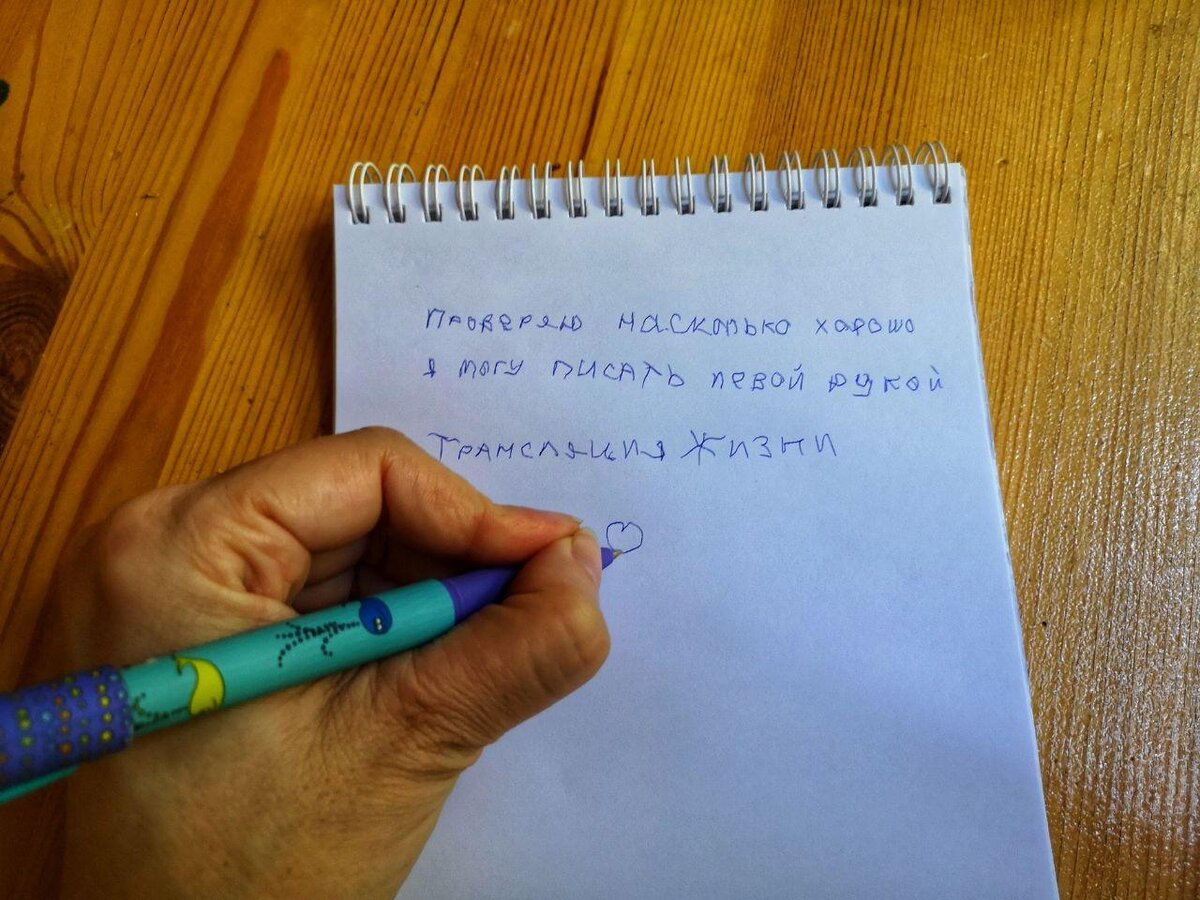 Проверяю насколько хорошо
я могу писать левой рукой
Трансляция Жизни